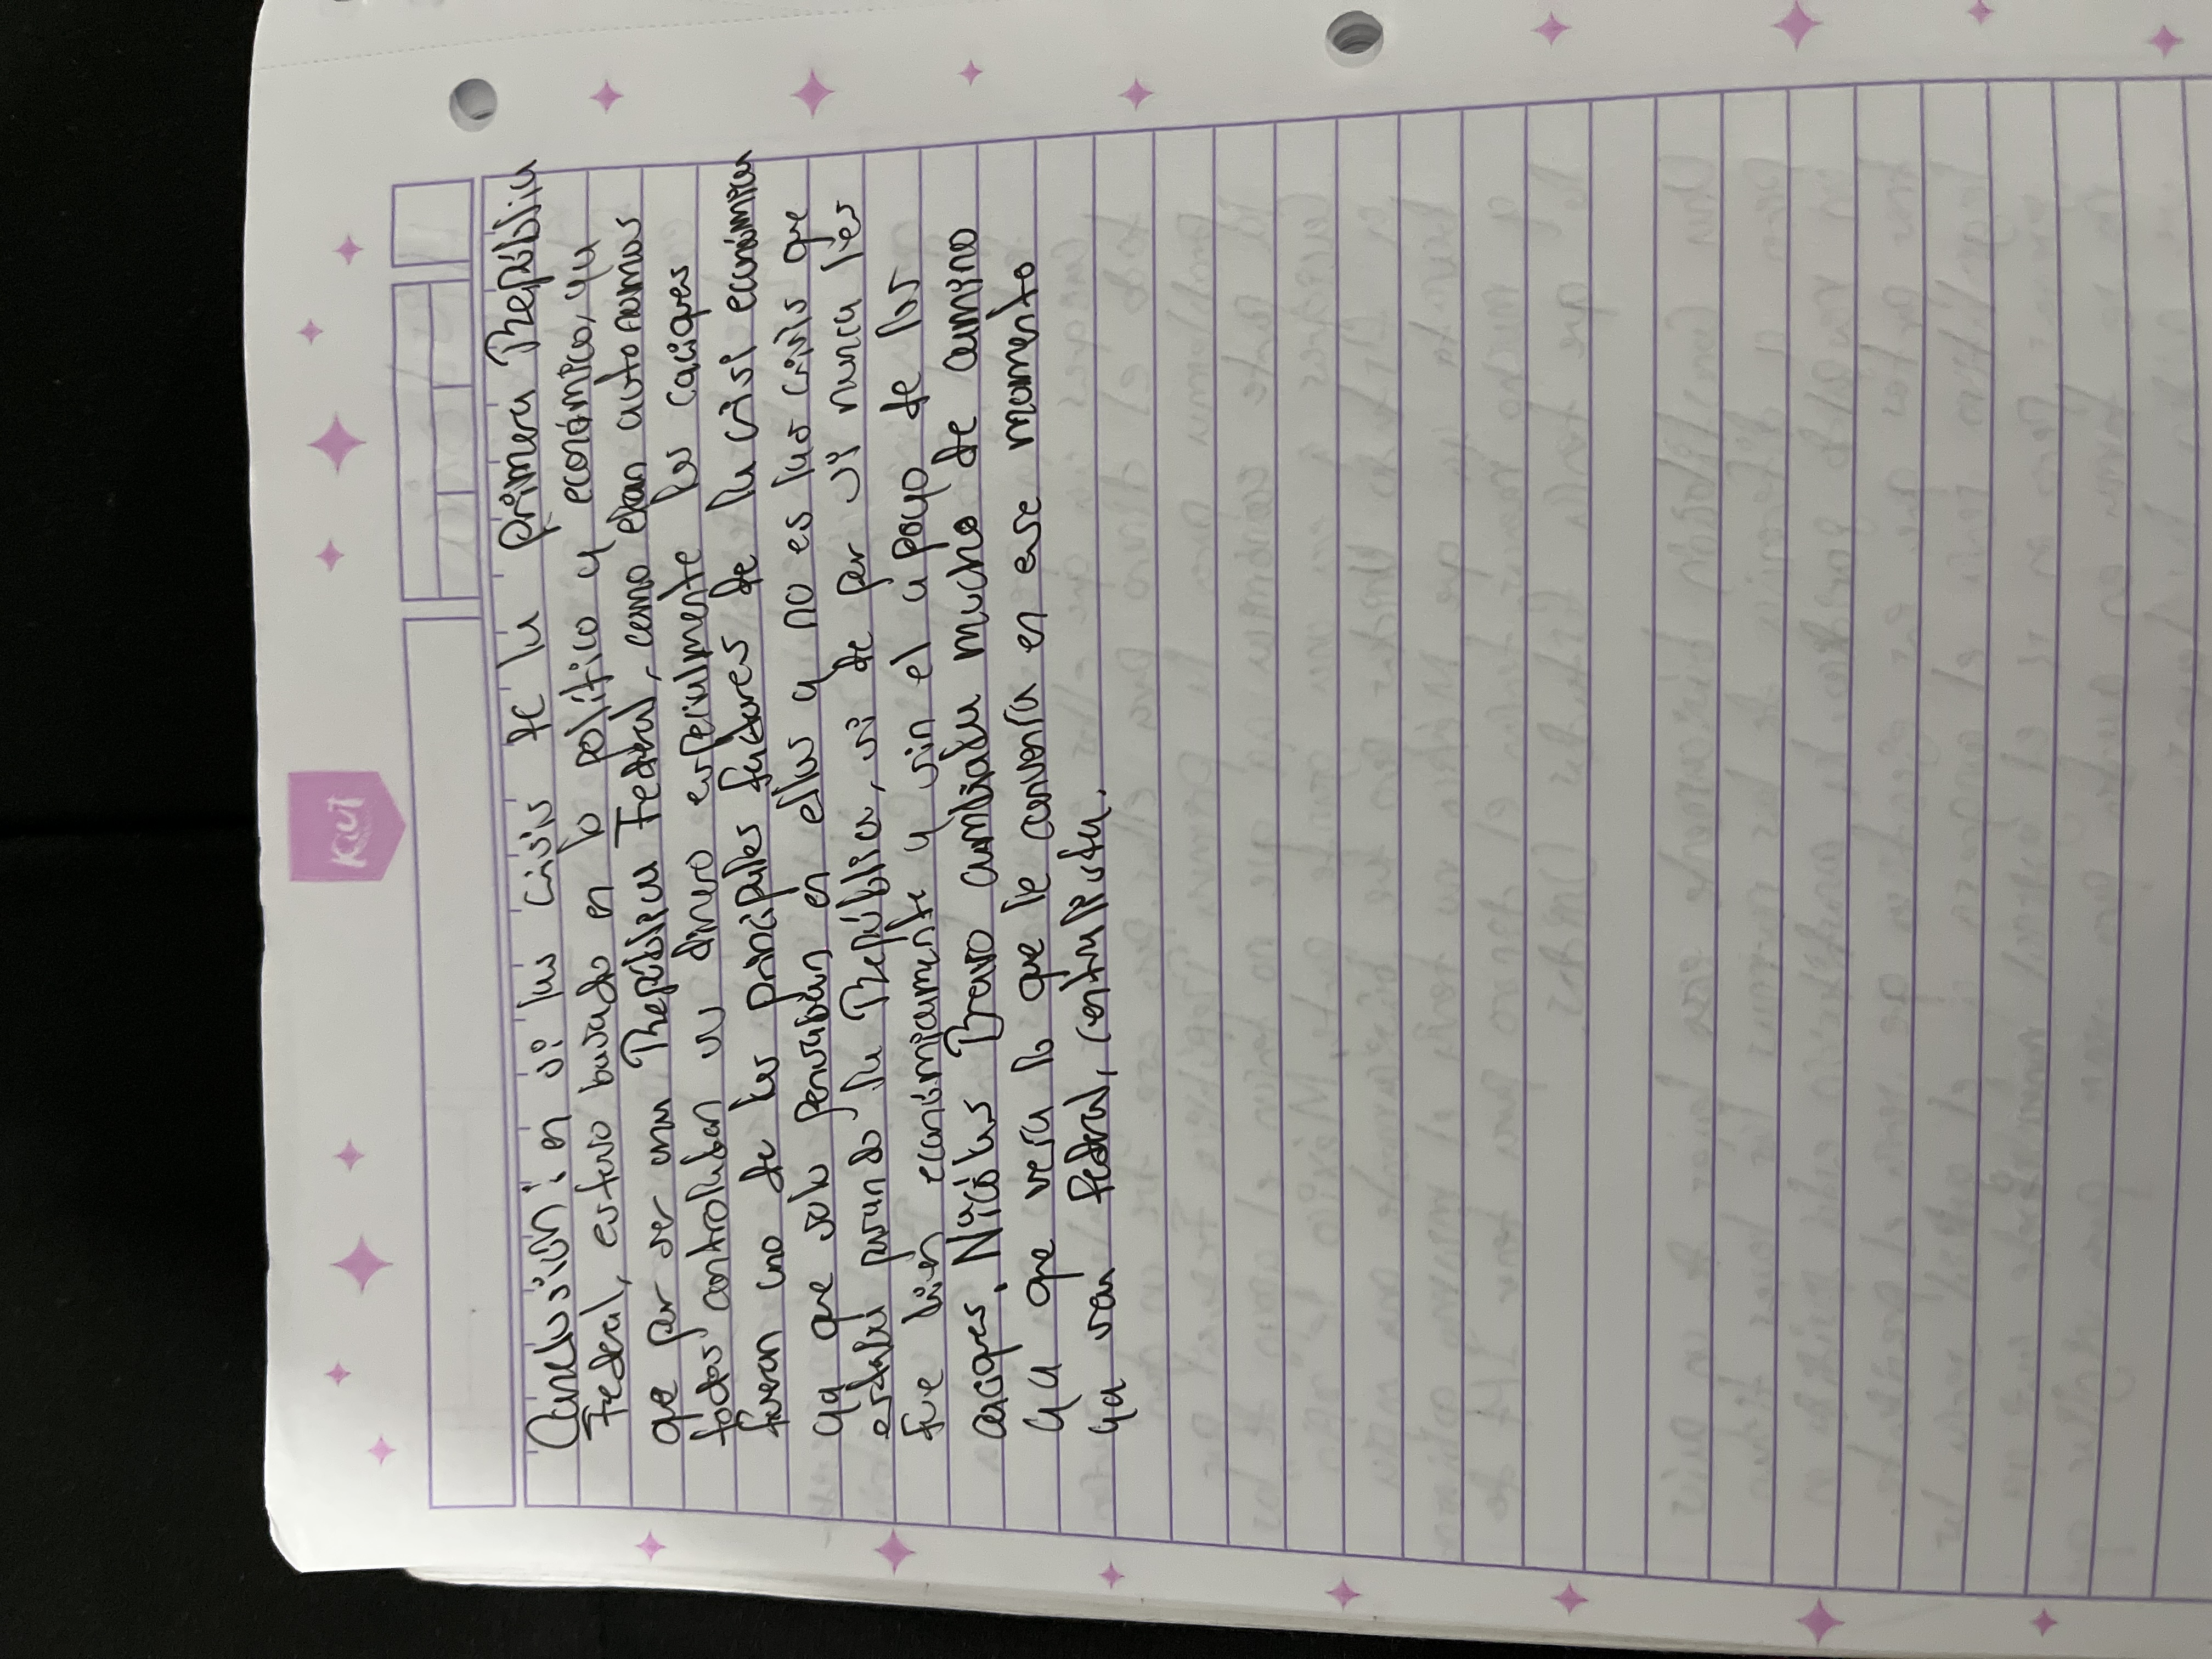 Kiut
Conclusión: en si las crisis de la primera República
Federal, estuvo basado en lo político y económico, ya
que por ser una República Federal, como eran autonomas
todos controlaban su dinero especialmente los caciques
fueron uno de los principales factores de la crisi económica
ya que solo pensaban en ellos y no es las crisis que
estaba pasando la República, si de por si nunca les
fue bien económicamente y sin el apoyo de los
caciques. Nicólas Bravo cambiaba mucho de camino
ya que veía lo que le convenía en ese momento
ya sean Fedral, centralista.